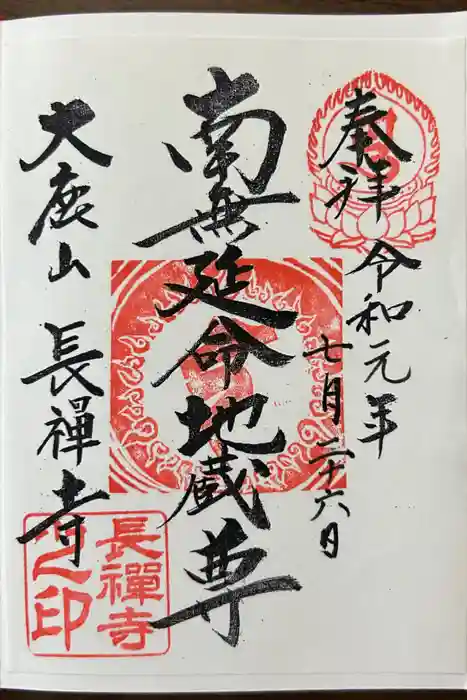 奉拝
令和元年
七月二十六日
南無延命地蔵尊
大鹿山 長禅寺
長禪寺
之印